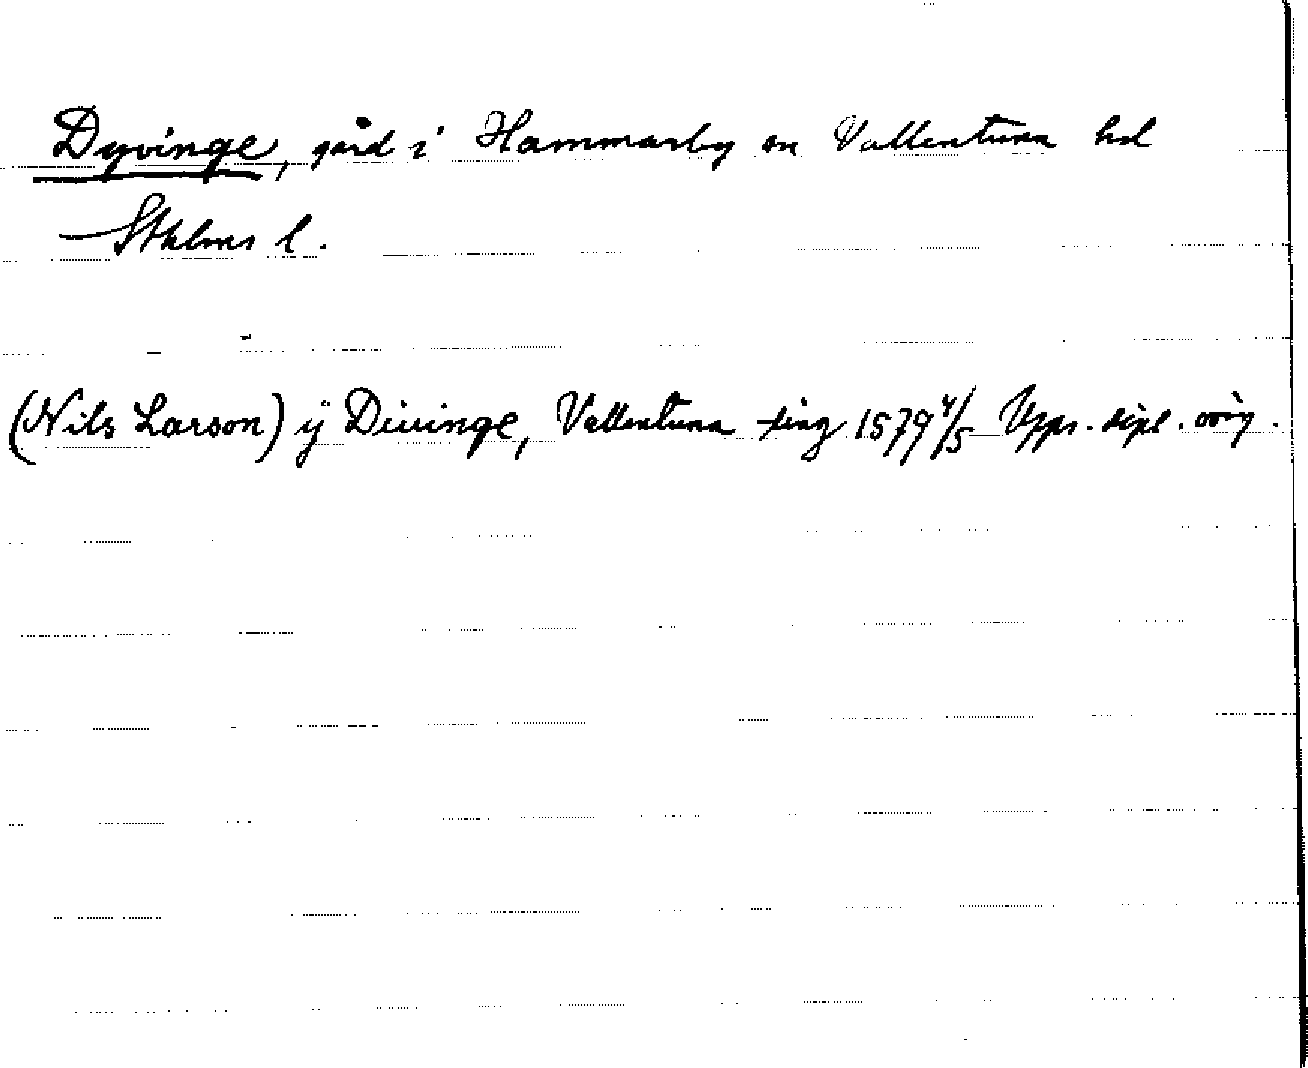 Dyvinge, gård i Hammarby sn Vallentuna hd
Sthlms l.
(Nils Larson) ÿ Diuinge, Vallentuna ting 1579 4/5 Upps. dipl. orig.